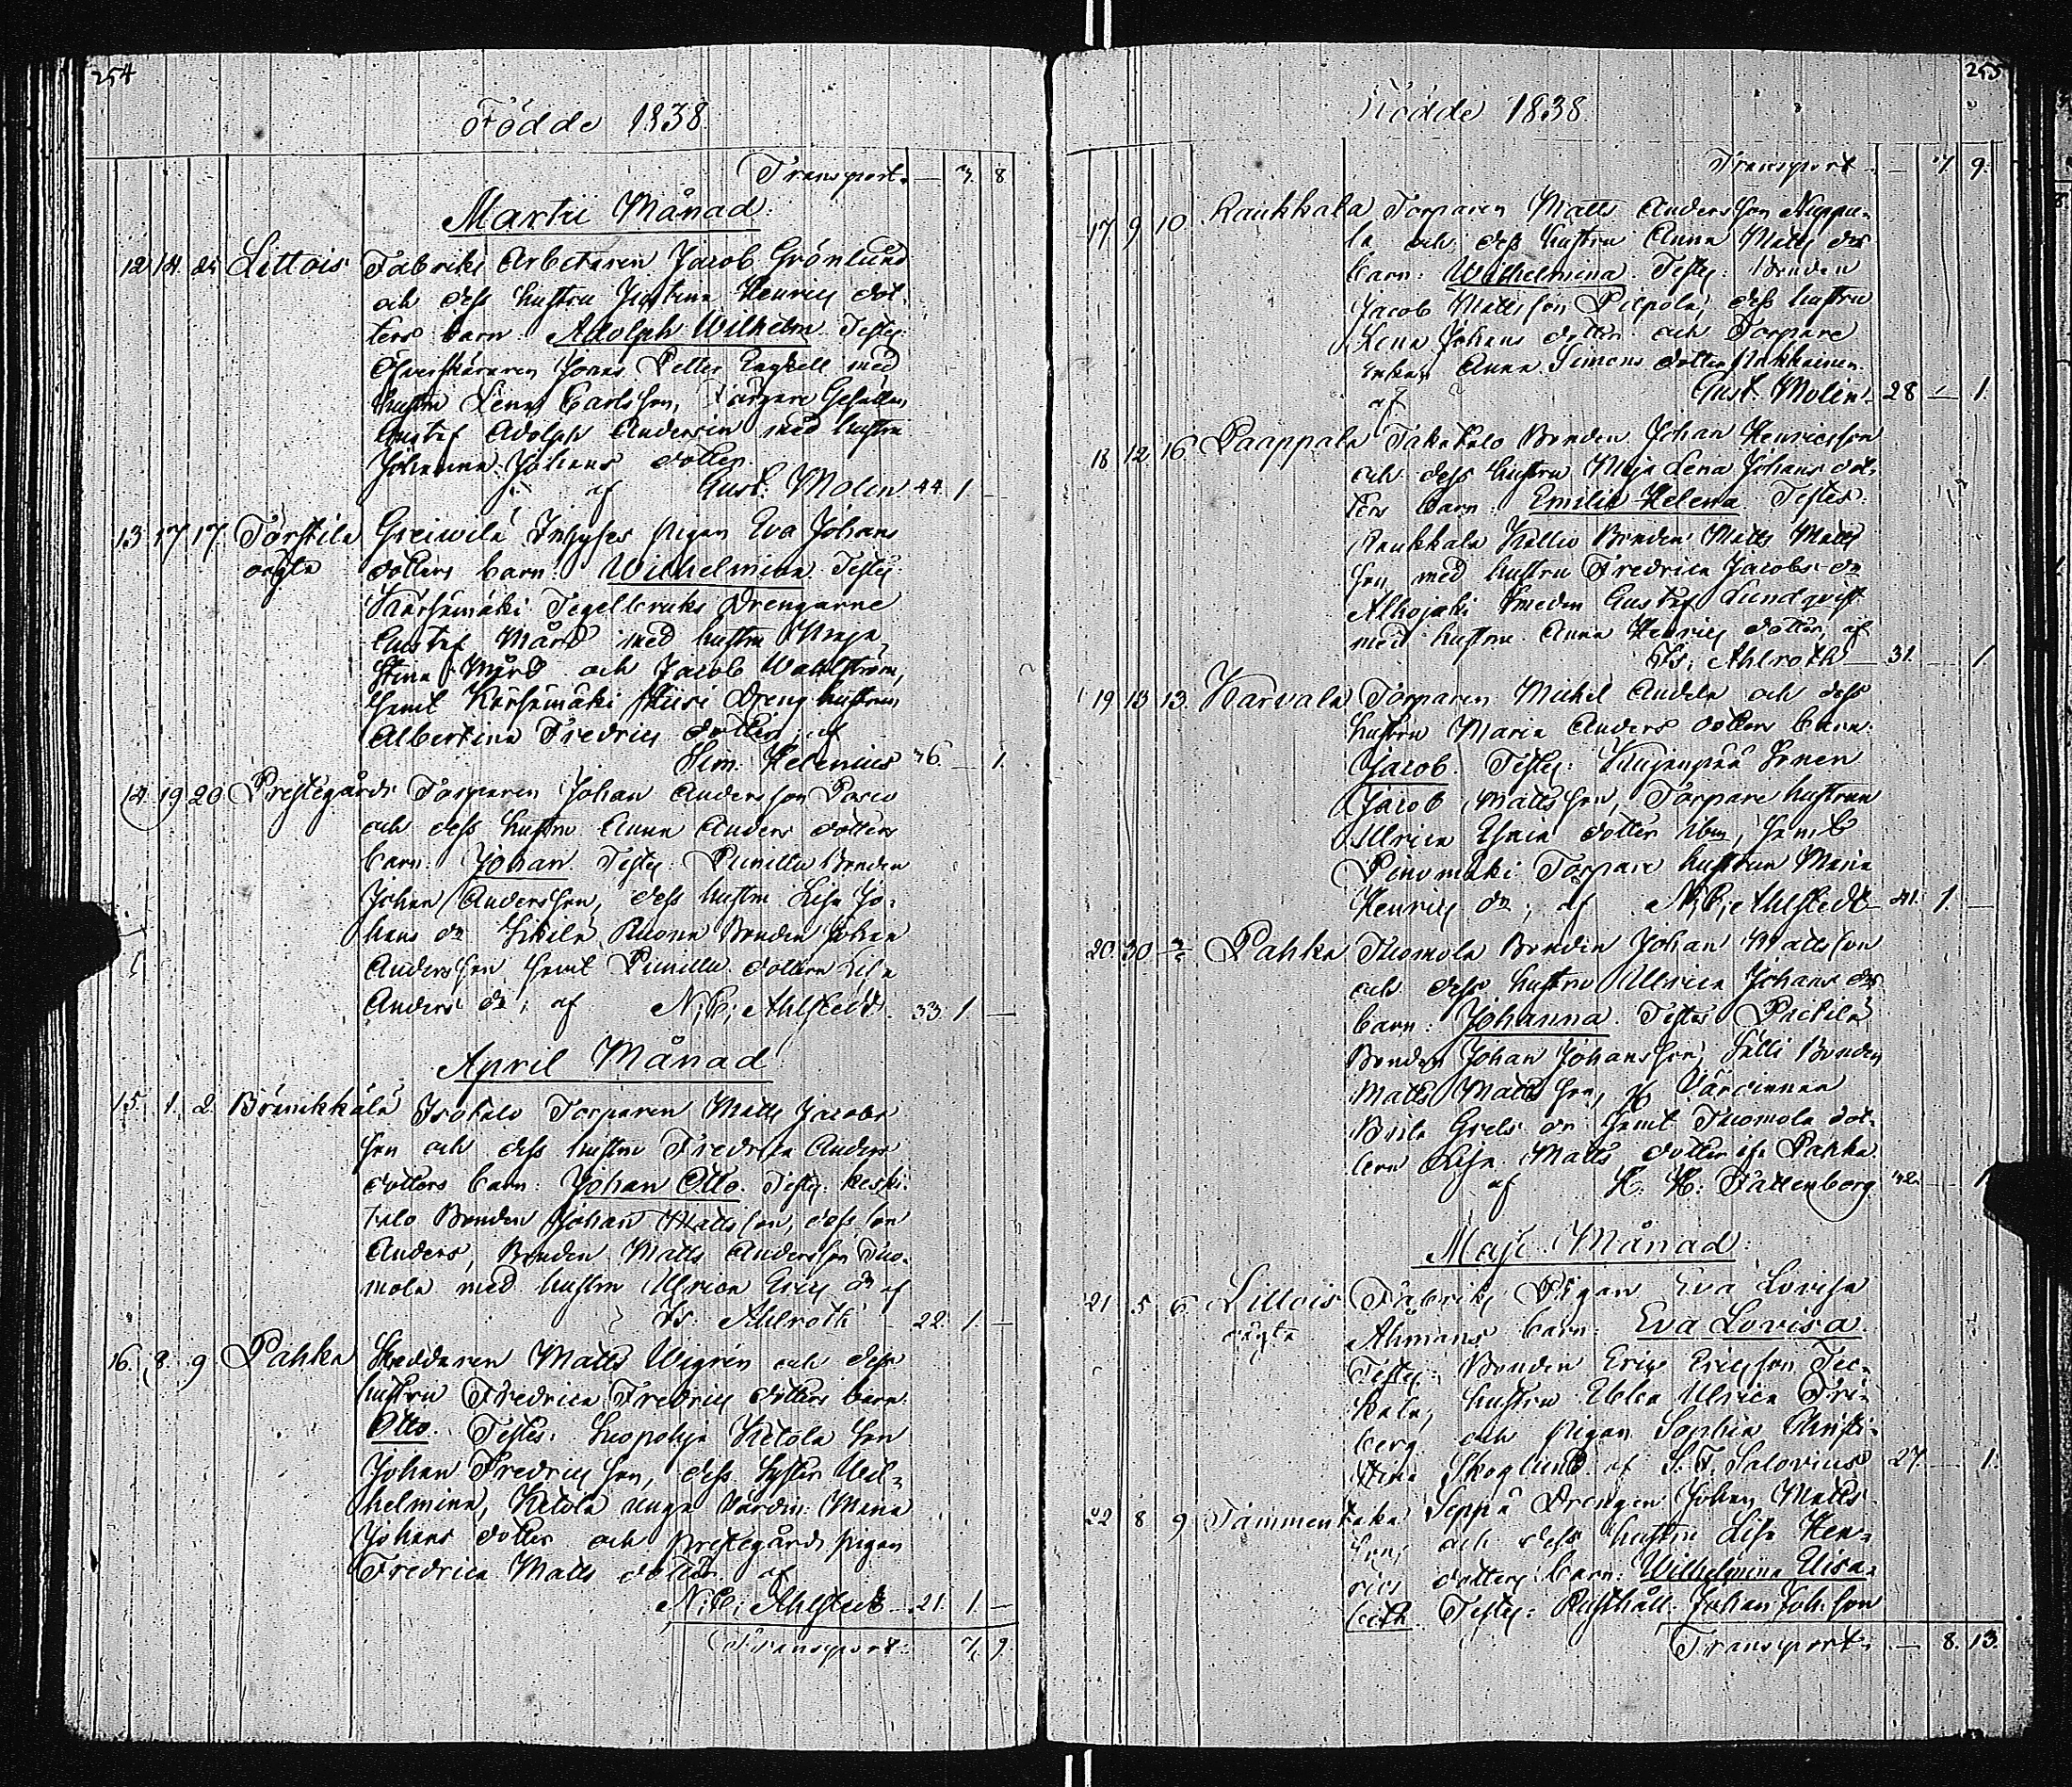 254
Födde 1838.
Transport. — 7. 8
Martii Månad.
12. 14. 25. Littois Fabriks Arbetaren Jacob Grönlund
och dess hustru Justina Henrics dot-
ters barn Adolph Wilhelm. Testes:
Öfverskäraren Jonas Petter Engvell med
hustru Lena Carlsson, Färgare Gesällen
Gustaf Adolph Andersin med hustru
Johanna Johans dotter.
af Gust. Molin 44. 1. —
13. 17. 17. Torstila Greiwilä Inhyses pigan Eva Johans
oägta dotters barn: Wilhelmina. Testes:
Kärsämäki Tegelbruks Drengarne
Gustaf Mård med hustru Maja
Stina Mård och Jacob Wahlström,
samt Kärsämäki Kiisi Dreng hustrun
Albertina Fredrics dotter, af
Sim. Helenius 36. — 1.
14. 19. 20 Prestegårds Torparen Johan Andersson
och dess hustru Anna Anders dotters
barn: Johan. Testes: Punittu Bonden
Johan Andersson, dess hustru Lisa Jo-
hans dr Ruona Bonden Johan
Andersson samt Punittu dottern Lisa
Anders dr; af N. C. Ahlstedt. 33. 1. —
April Månad
15. 1. 2. Brinikkälä Isotalo Torparen Matts Jacobs
son och dess hustru Fredrica Anders
dotters barn: Johan Otto. Testes: Keski-
talo Bonden Johan Mattsson, dess son
Anders, Bonden Matts Andersson Tuo-
mola med hustru Ulrica Erics dr af
Is. Ahlroth 22. 1. —
16. 8. 9 Pahka Skeddaren Matts Wigrén och dess
hustru Fredrica Fredrics dotters barn
Otto. Testes: Kuopohja Ketola son
Johan Fredricsson, dess syster Wil-
helmina, Ketola unga värdin: Maria
Johans dotter och prestegårds pigan
Fredrica Matts dotter af
N. C. Ahlstedt — 21. 1. —
Transport. 7. 9.
255
Födde 1838.
Transport. — 7 9.
17 9 10 Raukkala Torparen Matts Andersson Nuppu-
la och dess hustru Anna Matts drs
barn: Wilhelmina. Testes: Bonden
Jacob Mattsson Piepola, dess hustru
Lena Johans dotter och Torpare
Enkan Anna Simons dotter
af Gust. Molin 28 — 1.
18 12 16 Paappala Takatalo Bonden Johan Henricsson
och dess hustru Maja Lena Johans dot-
ters barn: Emilie Helena. Testes:
Raukkala Kallio Bonden Matts Matts
son med hustru Fredrica Jacobs dr
Alhojoki Smeden Gustaf Lundqvist
med hustru Anna Henrics dotter, af
Is. Ahlroth — 31. — 1
19 13 13. Karvala Torparen Michel Andela och dess
hustru Maria Anders dotters barn:
Jacob. Testes: Kujanpää Sonen
Jacob Mattsson, Torpare hustrun
Ulrica Esaia dotter ibm, samt
Poinomäki Torpare hustrun Maria
Henrics dr, af N. C. Ahlstedt — 41. 1. —
20. 30 Pahka Tuomola Bonden Johan Mattsson
och dess hustru Ulrica Johans drs
barn: Johanna. Testes Pietilä
Bonden Johan Johansson, Tälli Bonden
Matts Mattsson, Värdinnan
Brita Grels dr samt Tuomola dot-
tern Lisa Matts dotter ifr. Pahka
af H. H. Fattenborg 42. — 1
Maji Månad.
21. 5 6. Littois Fabriks Pigan Eva Lovisa
oägta Ahmans barn: Eva Lovisa.
Testes: Bonden Eric Ericsson Tec-
kala, hustru Ebba Ulrica Fri-
berg och pigan Sophia Christi-
tina Skoglund af S. F. Salovius 27. — 1.
22 8 9 Tammentaka Seppä Drengen Johan Matts-
son, och dess hustru Lisa Hen-
rics dotters barn: Wilhelmina Elisa-
beth. Testes: Rusthåll. Johan Joh:son
Transport. — 8. 13.